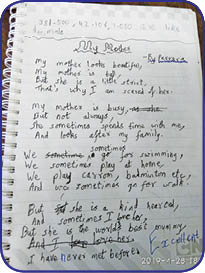 My Mother
My mother looks beautiful,
My mother is tall,
But she is a little strict,
That's why I am scared of her.
My mother is busy,
But not always,
She sometimes spends time with me,
And looks after my family.
sometimes
We go for swimming,
We sometimes play at home,
We play carrom, badminton etc,
And we sometimes go for walk.
But she is a kind hearted,
And sometimes I
But she is the world's best mummy,
And I love her.
I have never met before.
Excellent
2019-4-28 18